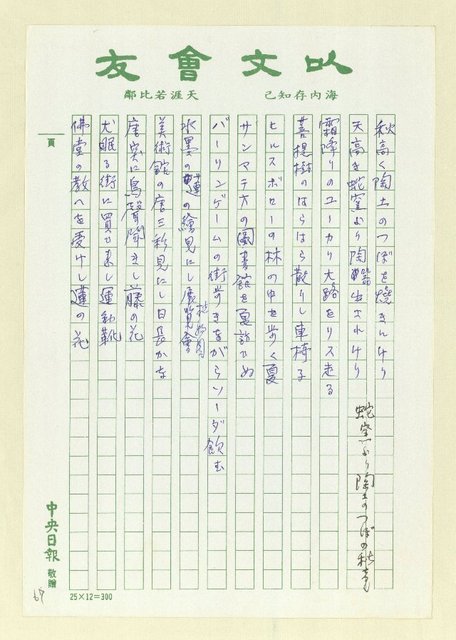 以文會友
海內存知己
天涯若比鄰
秋高く陶土のつぼを焼きにけり
天高き蛇窯より陶甕出されけり
霜降りのユーカリ大路をリス走る
菩提樹のはらはら散りし車椅子
ヒルスボローの林の中を歩く夏
サンマテオの図書館を夏訪ひぬ
バーリンゲームの街歩きながらソーダ飲む
水墨の蓮の絵見にし展覧会
美術館の唐三彩見にし日長かな
唐突に鳥聲聞きし藤の花
犬眠る街に買ひ来し運動靴
佛堂の教へを受けし蓮の花
蛇窯より陶土のつぼの秋高き
頁
中央日報
敬贈
25×12=300
67